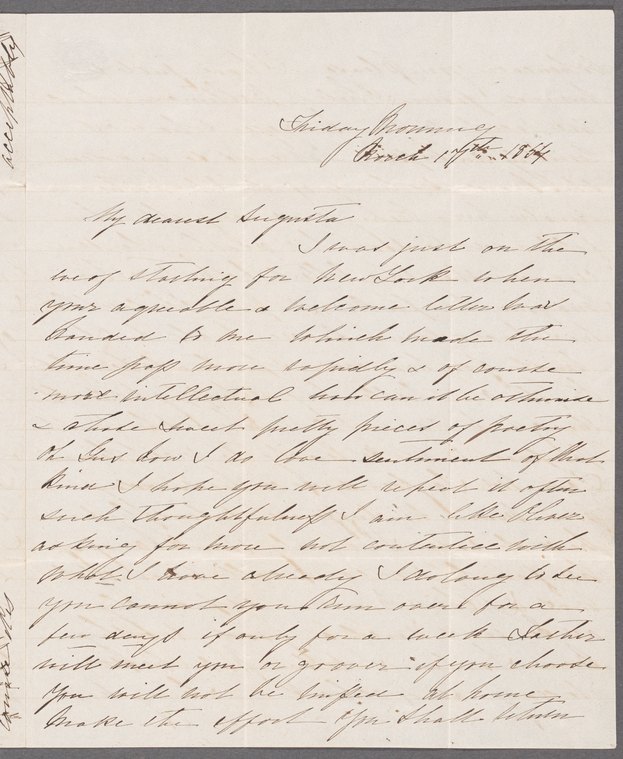 Friday Morning
March 17th 1864
My dearest Augusta
I was just on the
eve of starting for New York when
your agreeable & welcome letter was
handed to me which made the
time pass more rapidly & of course
more intellectual how can it be otherwise
& those sweet pretty pieces of poetry
Oh Gus how I do love sentiment of that
kind I hope you will repeat it often
such thoughtfulness I am like Oliver
asking for more not contented with
what I have already I do long to see
you cannot you run over for a
few days if only for a week Father
will meet you or go over if you choose
You will not be missed at home
Make the effort you shall return
acceptably